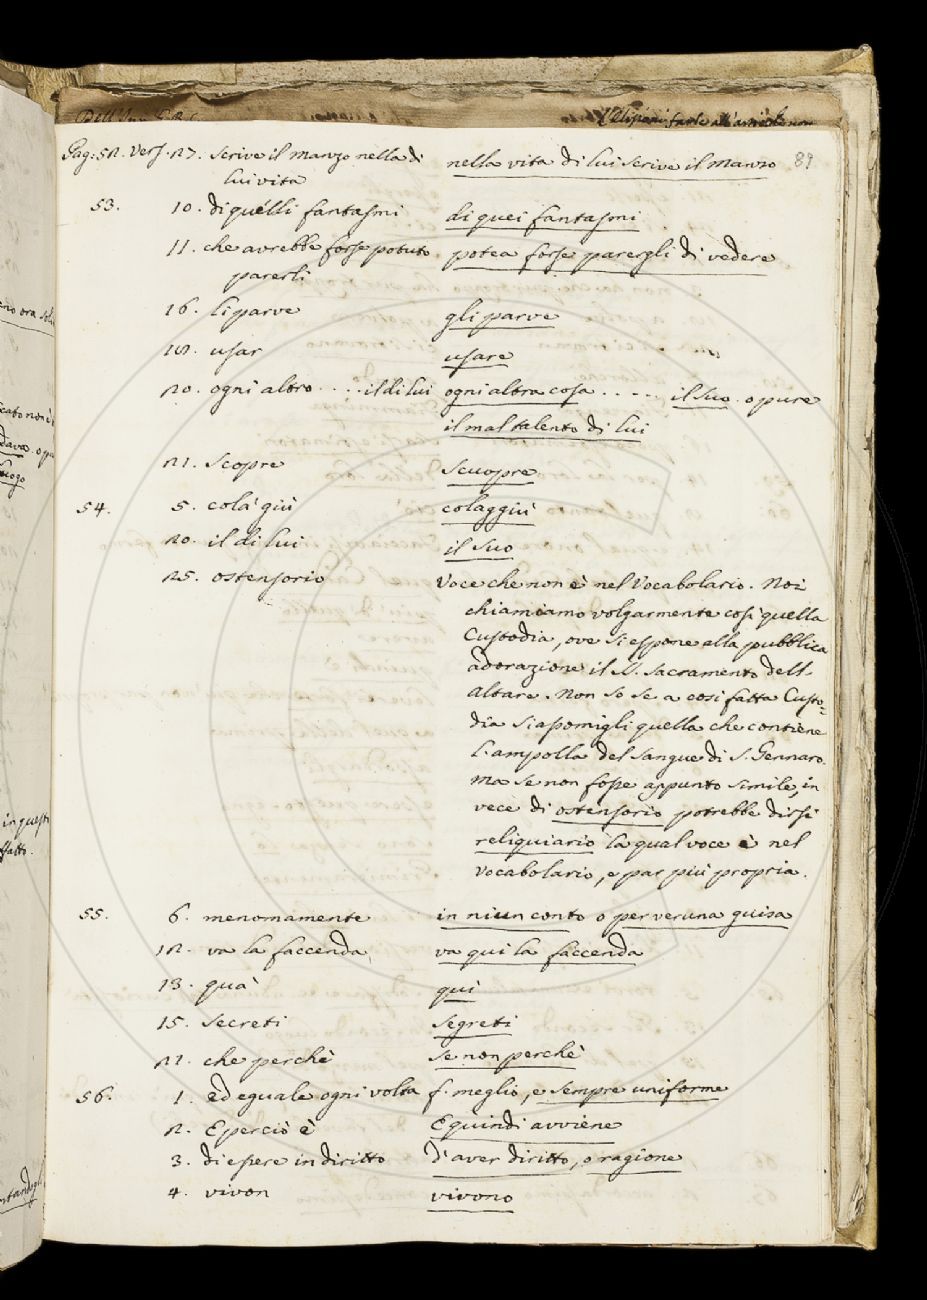 Pag: 52. Vers. 27. scrive il Manzo nella di nella vita di lui scrive il Manzo 89
lui vita
53. 10. di quelli fantasmi di quei fantasmi
11. che avrebbe forse potuto potea forse parergli di vedere
parerli
16. li parve gli parve
18. usar usare
20. ogni altro ..... il di lui ogni altra cosa ...... il suo. o pure
il mal talento di lui
21. scopre scuopre
54. 5. colà giù colaggiù
20. il di lui il suo
25. ostensorio Voce che non è nel Vocabolario. Noi
chiamiamo volgarmente così quella
Custodia, ove si espone alla pubblica
adorazione il SS. Sacramento dell
altare. Non so se a così fatta Custo=
dia s'assomigli quella che contiene
l'ampolla del Sangue di S. Gennaro.
Ma se non fosse appunto simile, in
vece di ostensorio potrebbe dirsi
reliquiario la qual voce è nel
Vocabolario, e par più propria.
55. 6. menomamente in niun conto o per veruna guisa
12. va la faccenda, va qui la faccenda
13. quà qui
15. secreti segreti
21. che perchè se non perchè
56. 1. ed eguale ogni volta f. meglio, e sempre uniforme
2. E perciò è E quindi avviene
3. di essere in diritto d'aver diritto, o ragione
4. vivon vivono